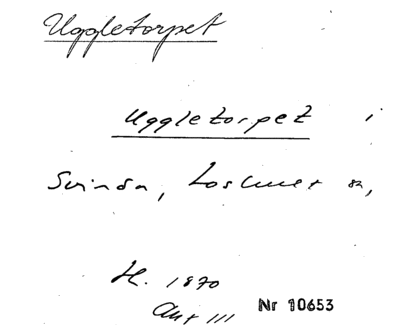 Uggletorpet
Uggletorpet i
Svinda, Loshult sn,
H. 1870
Ant III Nr 10653